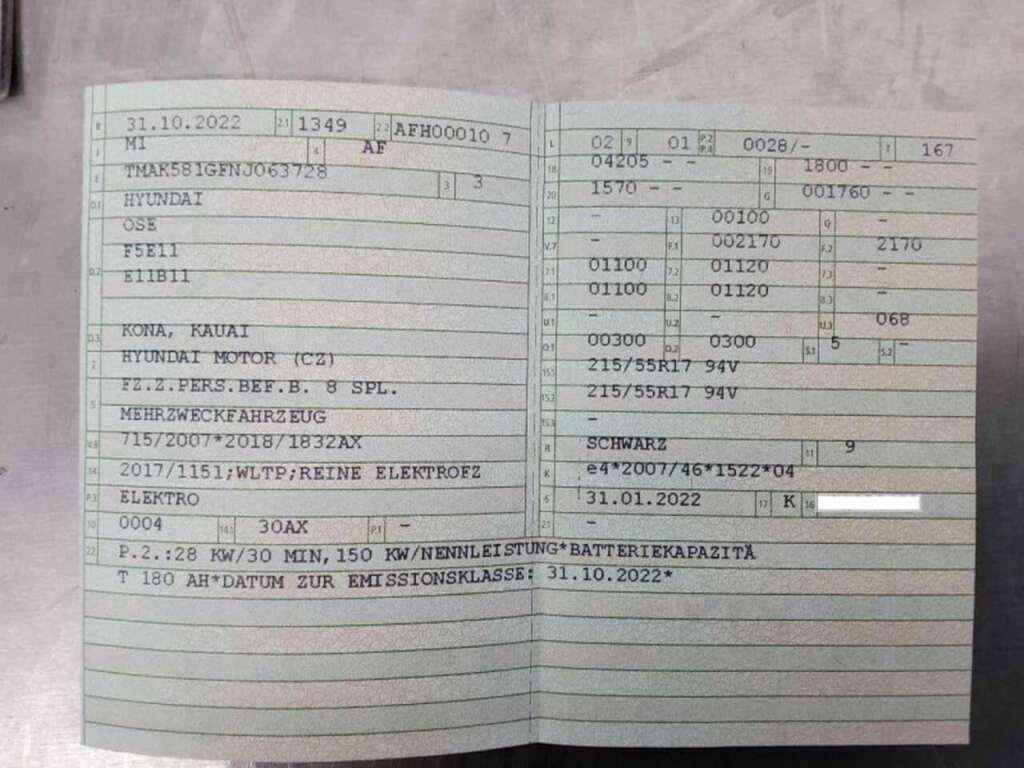 B 31.10.2022 2.1 1349 2.2 AFH00010 7
J M1 4 AF
E TMAK581GFNJ063728 3 3
D.1 HYUNDAI
OSE
D.2 F5E11
E11B11
D.3 KONA, KAUAI
2 HYUNDAI MOTOR (CZ)
FZ.Z.PERS.BEF.B. 8 SPL.
5 MEHRZWECKFAHRZEUG
V.9 715/2007*2018/1832AX
14 2017/1151;WLTP;REINE ELEKTROFZ
P.3 ELEKTRO
10 0004 14.1 30AX P.1 -
L 02 9 01 P.2 P.4 0028/- T 167
18 04205 - - 19 1800 - -
20 1570 - - G 001760 - -
12 - 13 00100 Q -
V.7 - F.1 002170 F.2 2170
7.1 01100 7.2 01120 7.3 -
8.1 01100 8.2 01120 8.3 -
U.1 - U.2 - U.3 068
O.1 00300 O.2 0300 S.1 5 S.2 -
15.1 215/55R17 94V
15.2 215/55R17 94V
15.3 -
R SCHWARZ 11 9
K e4*2007/46*1522*04
6 31.01.2022 17 K 16
21 -
22 P.2.:28 KW/30 MIN,150 KW/NENNLEISTUNG*BATTERIEKAPAZITÄ
T 180 AH*DATUM ZUR EMISSIONSKLASSE: 31.10.2022*